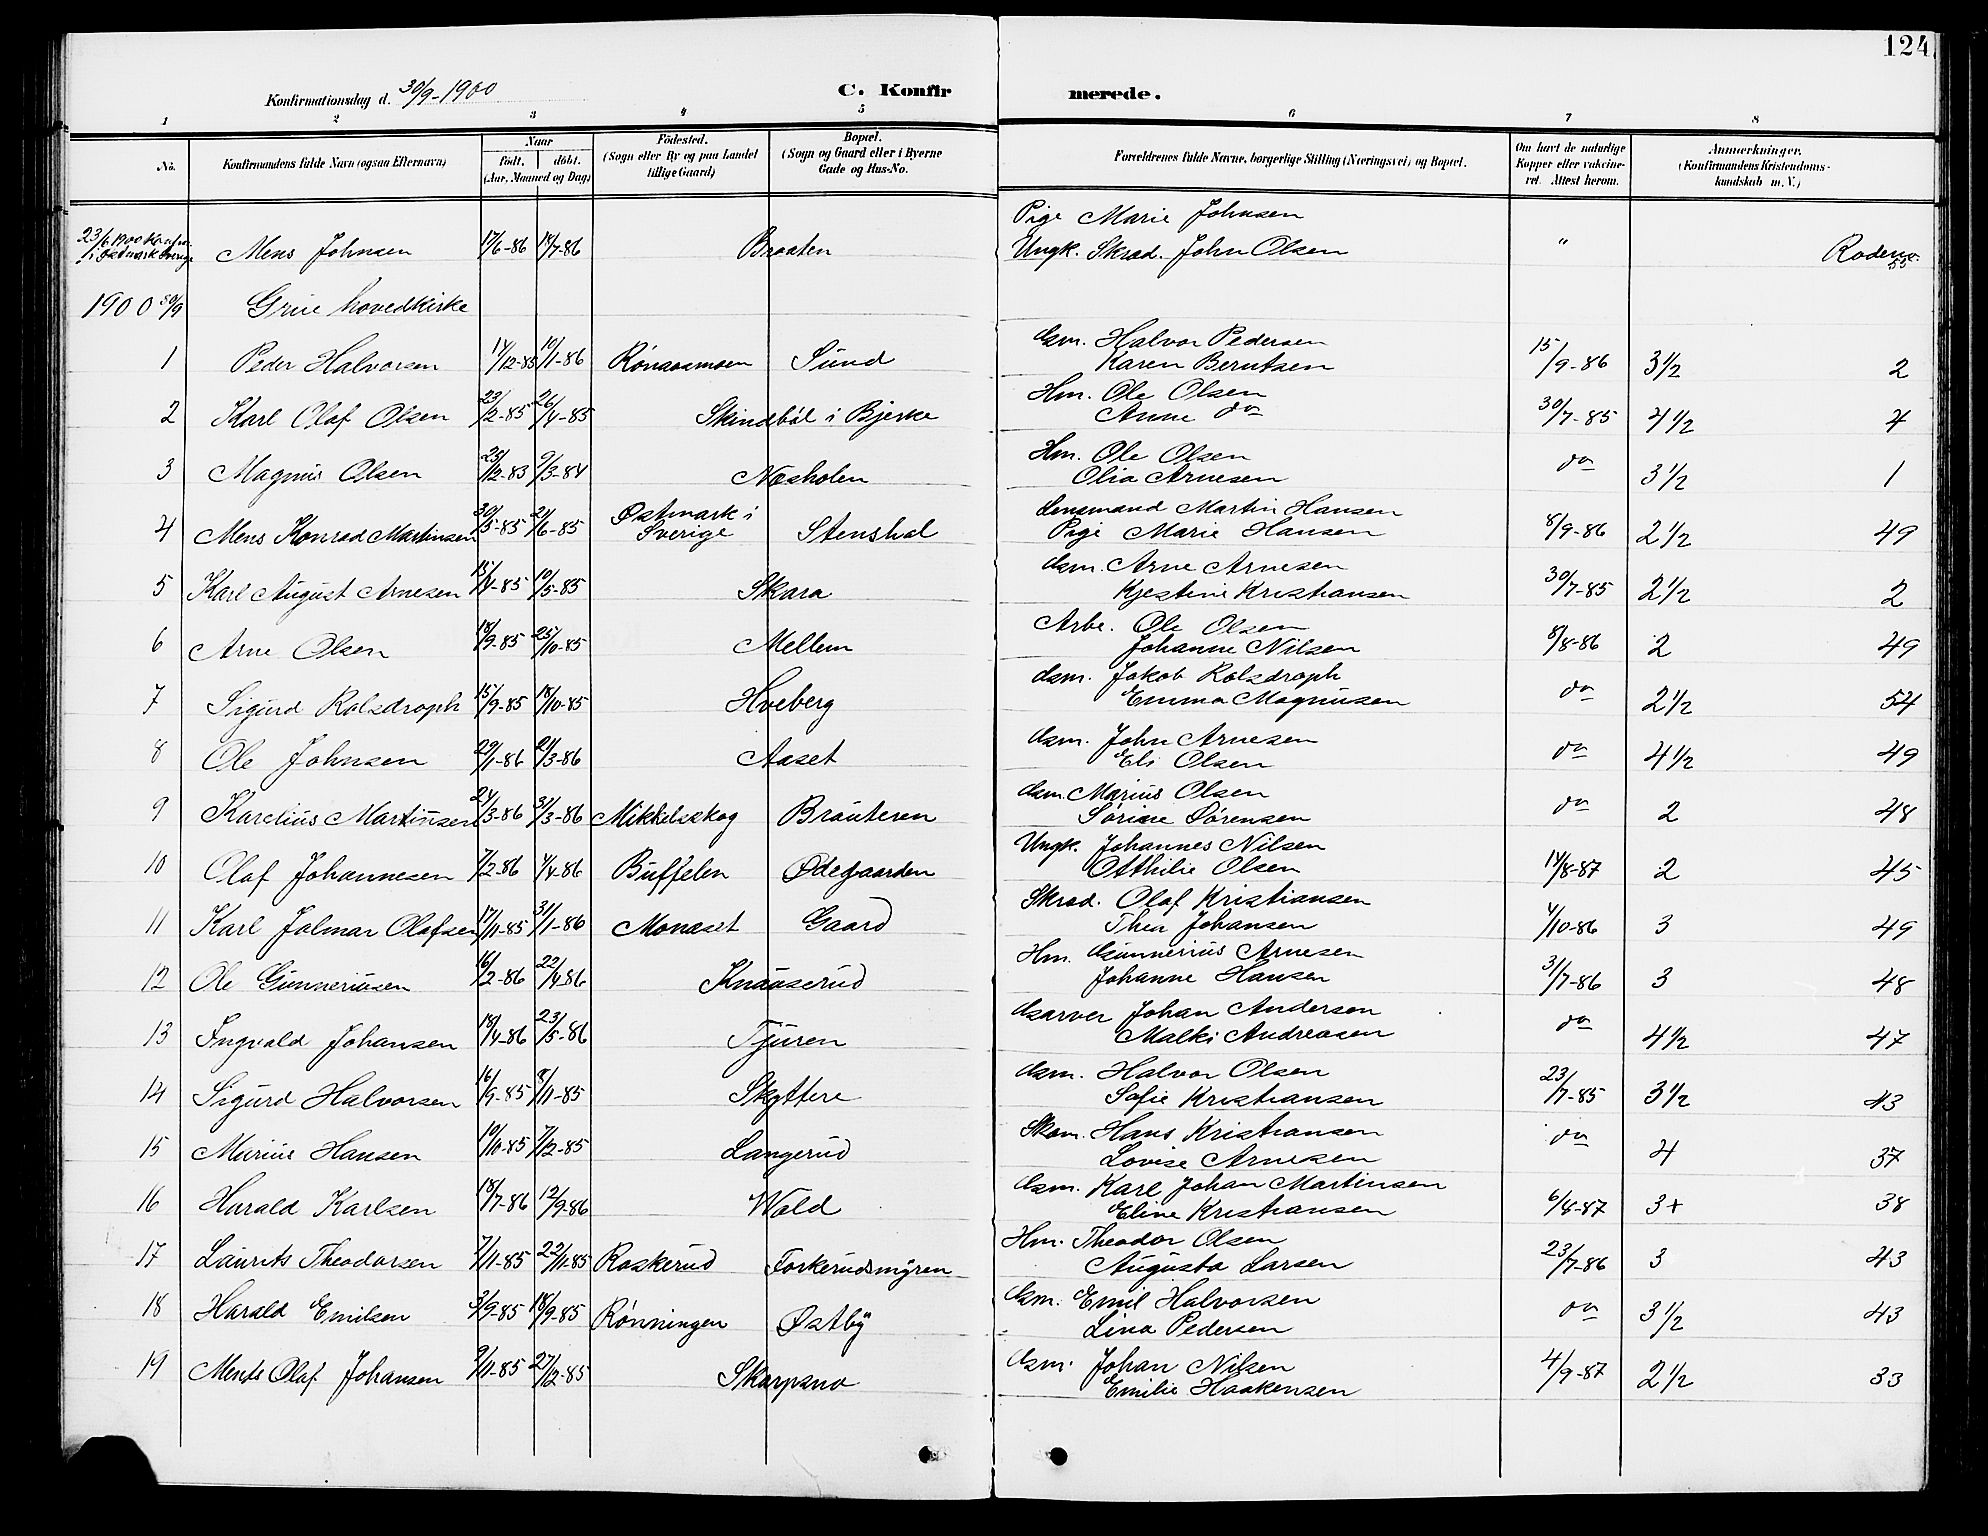 124
Konfirmationsdag d. 30/9-1900
C. Konfirmerede.
1 2 3 4 5 6 7 8
No. Konfirmandens fulde Navn (ogsaa Efternavn) Naar født, døbt. (Aar, Maaned og Dag) Fødested. (Sogn eller By og paa Landet tillige Gaard) Bopæl. (Sogn og Gaard eller i Byerne Gade og Hus-No. Forældrenes fulde Navne, borgerlige Stilling (Næringsvei) og Bopæl. Om havt de naturlige Kopper eller vakcineret. Attest herom. Anmærkninger. (Konfirmandens Kristendomskundskab m. V.)
Pige Marie Johnsen
23/6 1900 i Østmark Sverige Mens Johnsen 17/6-86 14/7-86 Braaten Ungk. Skræd. John Olsen "
1900 30/9 Grue hovedkirke
Gsm. Halvor Pedersen
1 Peder Halvorsen 14/12-85 10/1-86 Rønaasmoen Sund Karen Berntsen 15/9-86 3 1/2 2
Hm. Ole Olsen
2 Karl Olaf Olsen 23/2-85 26/4-85 Skindbøl i Bjerke Anne do 30/7-85 4 1/2 4
Hm. Ole Olsen
3 Magnus Olsen 25/12-83 9/3-84 Næsholen Olia Arnesen do 3 1/2 1
Lensmand Martin Hansen
4 Mens Konrad Martinsen 30/5-85 21/6-85 Østmark i Sverige Stenshol Pige Marie Hansen 8/9-86 2 1/2 49
Gsm. Arne Arnesen
5 Karl August Arnesen 15/4-85 10/5-85 Skara Kjestine Kristiansen 30/7-85 2 1/2 2
Arbe. Ole Olsen
6 Arne Olsen 18/9-85 25/10-85 Mellem Johanne Nilsen 8/8-86 2 49
Gsm. Jakob Rolsdroph
7 Sigurd Rolsdroph 15/9-85 18/10-85 Hveberg Emma Magnusen do 2 1/2 54
Gsm. John Arnesen
8 Ole Johnsen 29/1-86 21/3-86 Aaset Eli Olsen do 4 1/2 49
Gsm. Marius Olsen
9 Karelius Martinsen 24/3-86 31/3-86 Mikkelskog Brauteren Sørine Sørensen do 2 48
Ungk. Johannes Nilsen
10 Olaf Johannesen 7/2-86 4/4-86 Buffelen Ødegaarden Otthilie Olsen 14/8-87 2 45
Skræd. Olaf Kristiansen
11 Karl Jalmar Olafsen 17/11-85 31/1-86 Monaset Gaard Thea Johansen 4/10-86 3 49
Hm. Gunnerius Arnesen
12 Ole Gunneriusen 16/2-86 22/4-86 Knauserud Johanne Hansen 31/7-86 3 48
Garver Johan Andersen
13 Ingvald Johansen 18/4-86 23/5-86 Tjuren Malki Andreasen do 4 1/2 47
Gsm. Halvor Olsen
14 Sigurd Halvorsen 16/9-85 8/11-85 Skyttere Sofie Kristiansen 23/7-85 3 1/2 43
Skom. Hans Kristiansen
15 Marius Hansen 10/10-85 7/12-85 Langerud Lovise Arnesen do 4 37
Gsm. Karl Johan Martinsen
16 Harald Karlsen 18/7-86 12/9-86 Wold Eline Kristiansen 6/8-87 3+ 38
Hm. Theodor Olsen
17 Laurits Theodorsen 7/11-85 22/11-85 Raskerud Torkerudsmyren Augusta Larsen 23/7-86 3 43
Gsm. Emil Halvorsen
18 Harald Emilsen 3/9-85 18/9-85 Rønningen Østby Lina Pedersen do 3 1/2 43
Gsm. Johan Nilsen
19 Ments Olaf Johansen 9/11-85 27/12-85 Skarpsno Emilie Haakensen 4/9-87 2 1/2 33